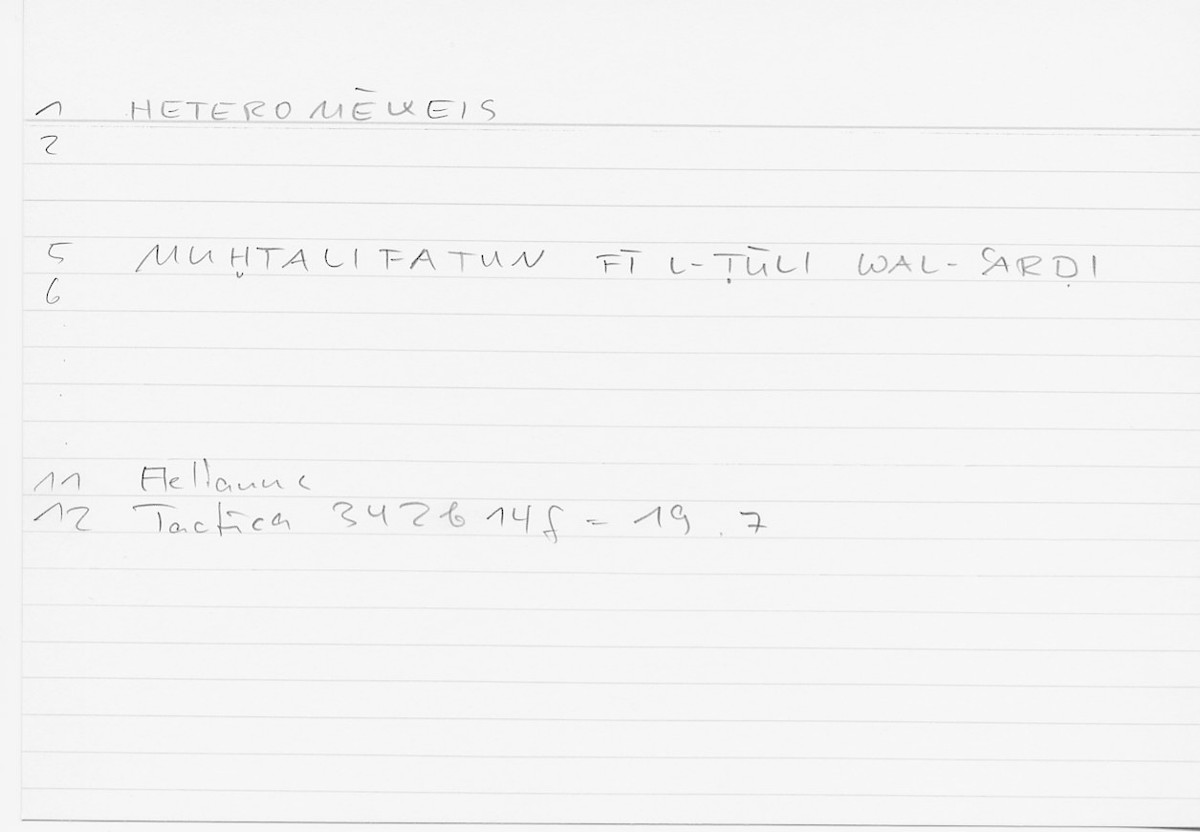 1 HETEROMĒKEIS
2
5 MUḪTALIFATUN FĪ L-ṬŪLI WAL-ʿARḌI
6
11 Aelianus
12 Tactica 342b14f = 19.7